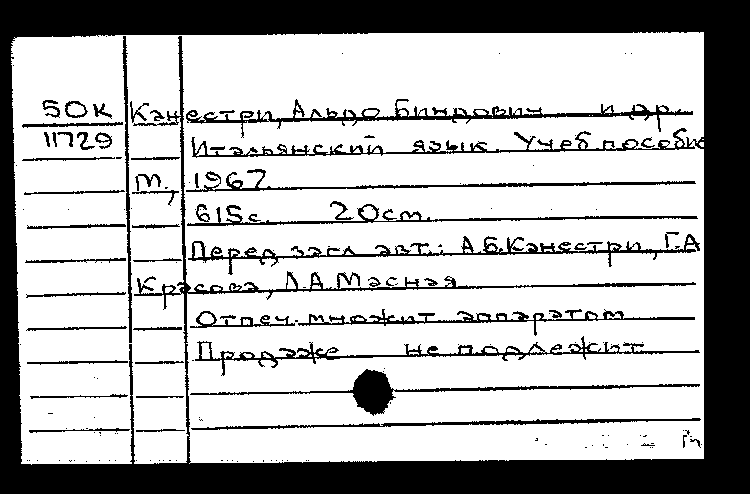 50К Канестри, Альдо Биндович и др.
11729 Итальянский язык. Учеб. пособие
М., 1967.
615с. 20см.
Перед загл. авт.: А.Б.Канестри, Г.А
Красова, Л.А.Масная
Отпеч. множит. аппаратом
Продаже не подлежит